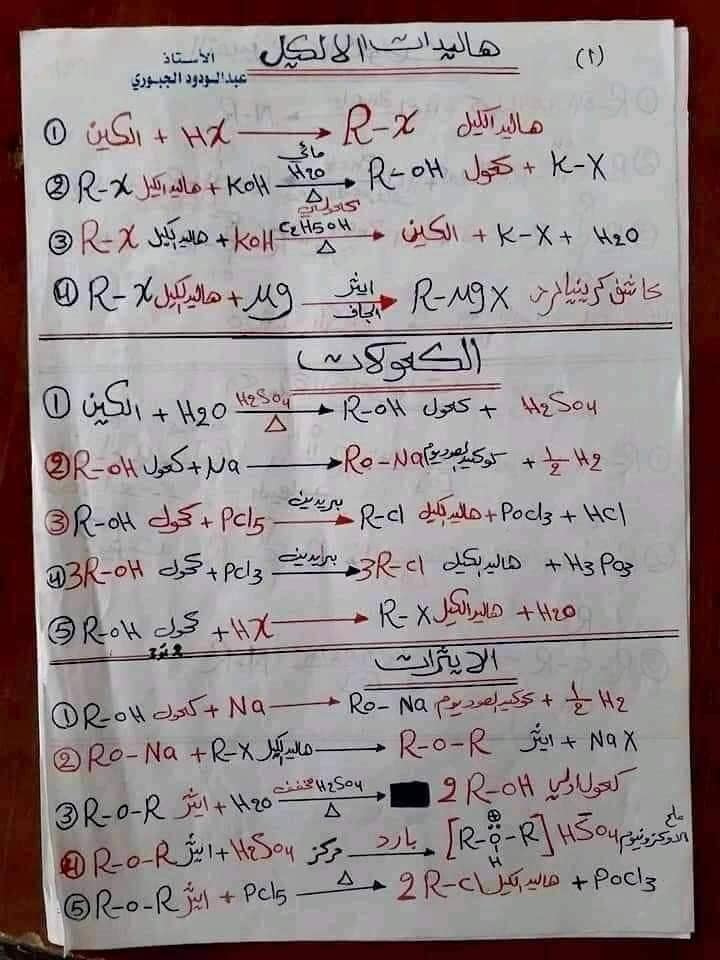 (٢)
هاليدات الالكيل
الأستاذ
عبدالودود الجبوري
① الكين + HX → R-X هاليد الكيل
② R-X هاليد الكيل + KOH مائي H2O △ → R-OH كحول + K-X
③ R-X هاليد الكيل + KOH كحولي C2H5OH △ → الكين + K-X + H2O
④ R-X هاليد الكيل + Mg ايثر الجاف → R-MgX كاشف كرينيارد
الكحولات
① الكين + H2O H2SO4 △ → R-OH كحول + H2SO4
② R-OH كحول + Na → RO-Na الصوديوم + ½ H2
③ R-OH كحول + PCl5 بريدين → R-Cl هاليد الكيل + POCl3 + HCl
④ 3R-OH كحول + PCl3 بريدين → 3R-Cl هاليد الكيل + H3PO3
⑤ R-OH كحول + HX → R-X هاليد الكيل + H2O
الايثرات
① R-OH كحول + Na → RO-Na الصوديوم + ½ H2
② RO-Na + R-X هاليد الكيل → R-O-R ايثر + NaX
③ R-O-R ايثر + H2O مخفف H2SO4 △ → 2R-OH كحول اولي
④ R-O-R ايثر + H2SO4 مركز بارد → [R-O-R] ⊕ H HSO4- ملح الاوكزونيوم
⑤ R-O-R ايثر + PCl5 △ → 2R-Cl هاليد الكيل + POCl3